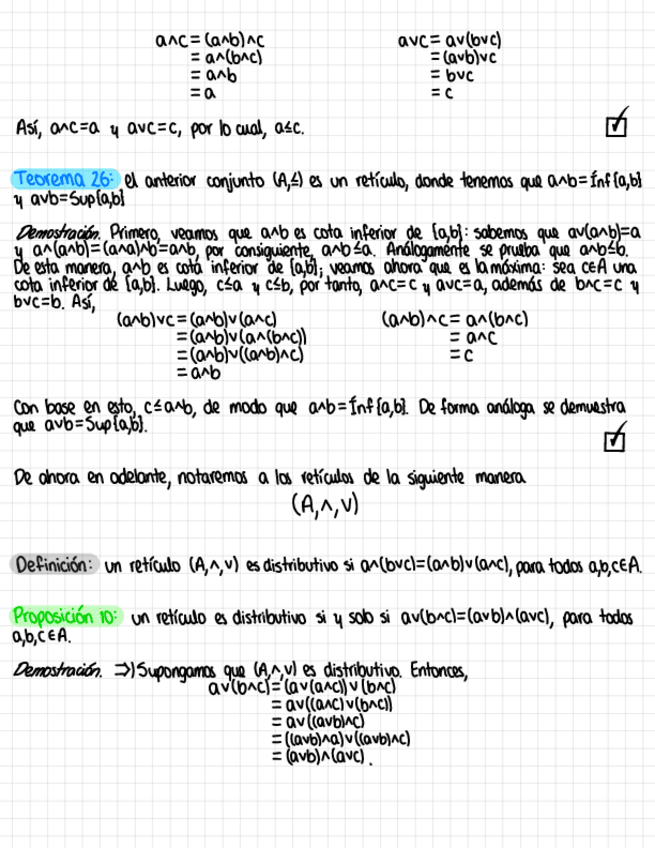 a∧c = (a∧b)∧c
= a∧(b∧c)
= a∧b
= a
a∨c = a∨(b∨c)
= (a∨b)∨c
= b∨c
= c
Así, a∧c=a y a∨c=c, por lo cual, a≤c.
Teorema 26: el anterior conjunto (A,≤) es un retículo, donde tenemos que a∧b=Ínf{a,b}
y a∨b=Sup{a,b}
Demostración. Primero, veamos que a∧b es cota inferior de {a,b}: sabemos que a∨(a∧b)=a
y a∧(a∧b)=(a∧a)∧b=a∧b, por consiguiente, a∧b≤a. Análogamente se prueba que a∧b≤b.
De esta manera, a∧b es cota inferior de {a,b}; veamos ahora que es la máxima: sea c∈A una
cota inferior de {a,b}. Luego, c≤a y c≤b, por tanto, a∧c=c y a∨c=a, además de b∧c=c y
b∨c=b. Así,
(a∧b)∨c = (a∧b)∨(a∧c)
= (a∧b)∨(a∧(b∧c))
= (a∧b)∨((a∧b)∧c)
= a∧b
(a∧b)∧c = a∧(b∧c)
= a∧c
= c
Con base en esto, c≤a∧b, de modo que a∧b=Ínf{a,b}. De forma análoga se demuestra
que a∨b=Sup{a,b}.
De ahora en adelante, notaremos a los retículos de la siguiente manera
(A,∧,∨)
Definición: un retículo (A,∧,∨) es distributivo si a∧(b∨c)=(a∧b)∨(a∧c), para todos a,b,c∈A.
Proposición 10: un retículo es distributivo si y solo si a∨(b∧c)=(a∨b)∧(a∨c), para todos
a,b,c∈A.
Demostración. ⇒) Supongamos que (A,∧,∨) es distributivo. Entonces,
a∨(b∧c) = (a∨(a∧c))∨(b∧c)
= a∨((a∧c)∨(b∧c))
= a∨((a∨b)∧c)
= ((a∨b)∧a)∨((a∨b)∧c)
= (a∨b)∧(a∨c).